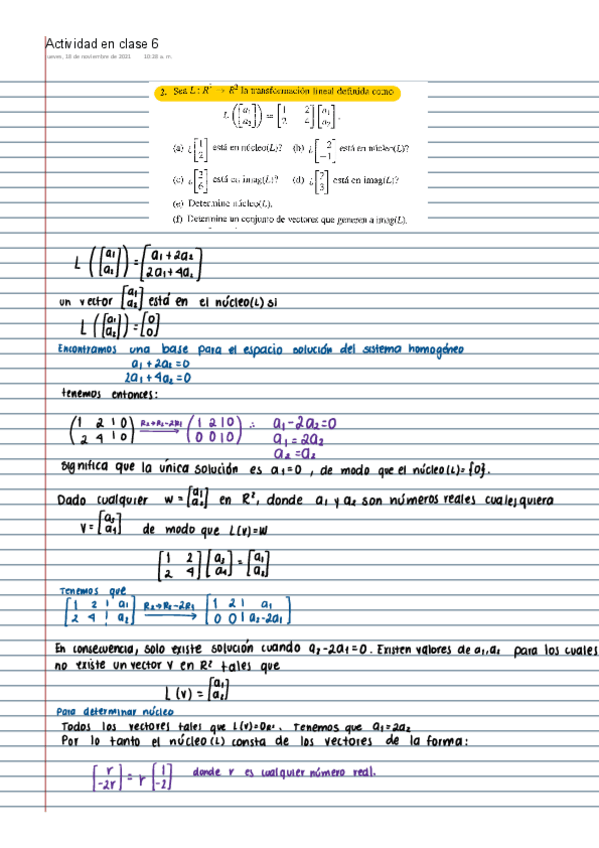 Actividad en clase 6
jueves, 18 de noviembre de 2021 10:28 a. m.
2. Sea L: R² → R² la transformación lineal definida como
L([a₁ a₂]) = [1 2 2 4][a₁ a₂].
(a) ¿[1 2] está en núcleo(L)? (b) ¿[2 −1] está en núcleo(L)?
(c) ¿[3 6] está en imag(L)? (d) ¿[2 3] está en imag(L)?
(e) Determine núcleo(L).
(f) Determine un conjunto de vectores que generen a imag(L).
L([a₁ a₂]) = [a₁+2a₂ 2a₁+4a₂]
un vector [a₁ a₂] está en el núcleo(L) si
L([a₁ a₂]) = [0 0]
Encontramos una base para el espacio solución del sistema homogéneo
a₁+2a₂=0
2a₁+4a₂=0
tenemos entonces:
(1 2 | 0 2 4 | 0) R₂→R₂-2R₁ (1 2 | 0 0 0 | 0) ∴ a₁-2a₂=0
a₁=2a₂
a₂=a₂
Significa que la única solución es a₁=0, de modo que el núcleo(L)={0}.
Dado cualquier w=[a₁ a₂] en R², donde a₁ y a₂ son números reales cualesquiera
V=[a₂ a₁] de modo que L(v)=W
[1 2 2 4][a₂ a₁]=[a₁ a₂]
Tenemos que
[1 2 | a₁ 2 4 | a₂] R₂→R₂-2R₁ [1 2 | a₁ 0 0 | a₂-2a₁]
En consecuencia, solo existe solución cuando a₂-2a₁=0. Existen valores de a₁,a₂ para los cuales
no existe un vector V en R² tales que
L(v)=[a₁ a₂]
Para determinar núcleo
Todos los vectores tales que L(v)=0R². Tenemos que a₁=2a₂
Por lo tanto el núcleo(L) consta de los vectores de la forma:
[r -2r]=r[1 -2] donde r es cualquier número real.